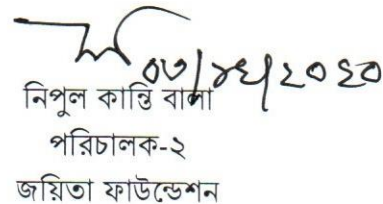 ০৩/১২/২০২০
নিপুল কান্তি বালা
পরিচালক-২
জয়িতা ফাউন্ডেশন